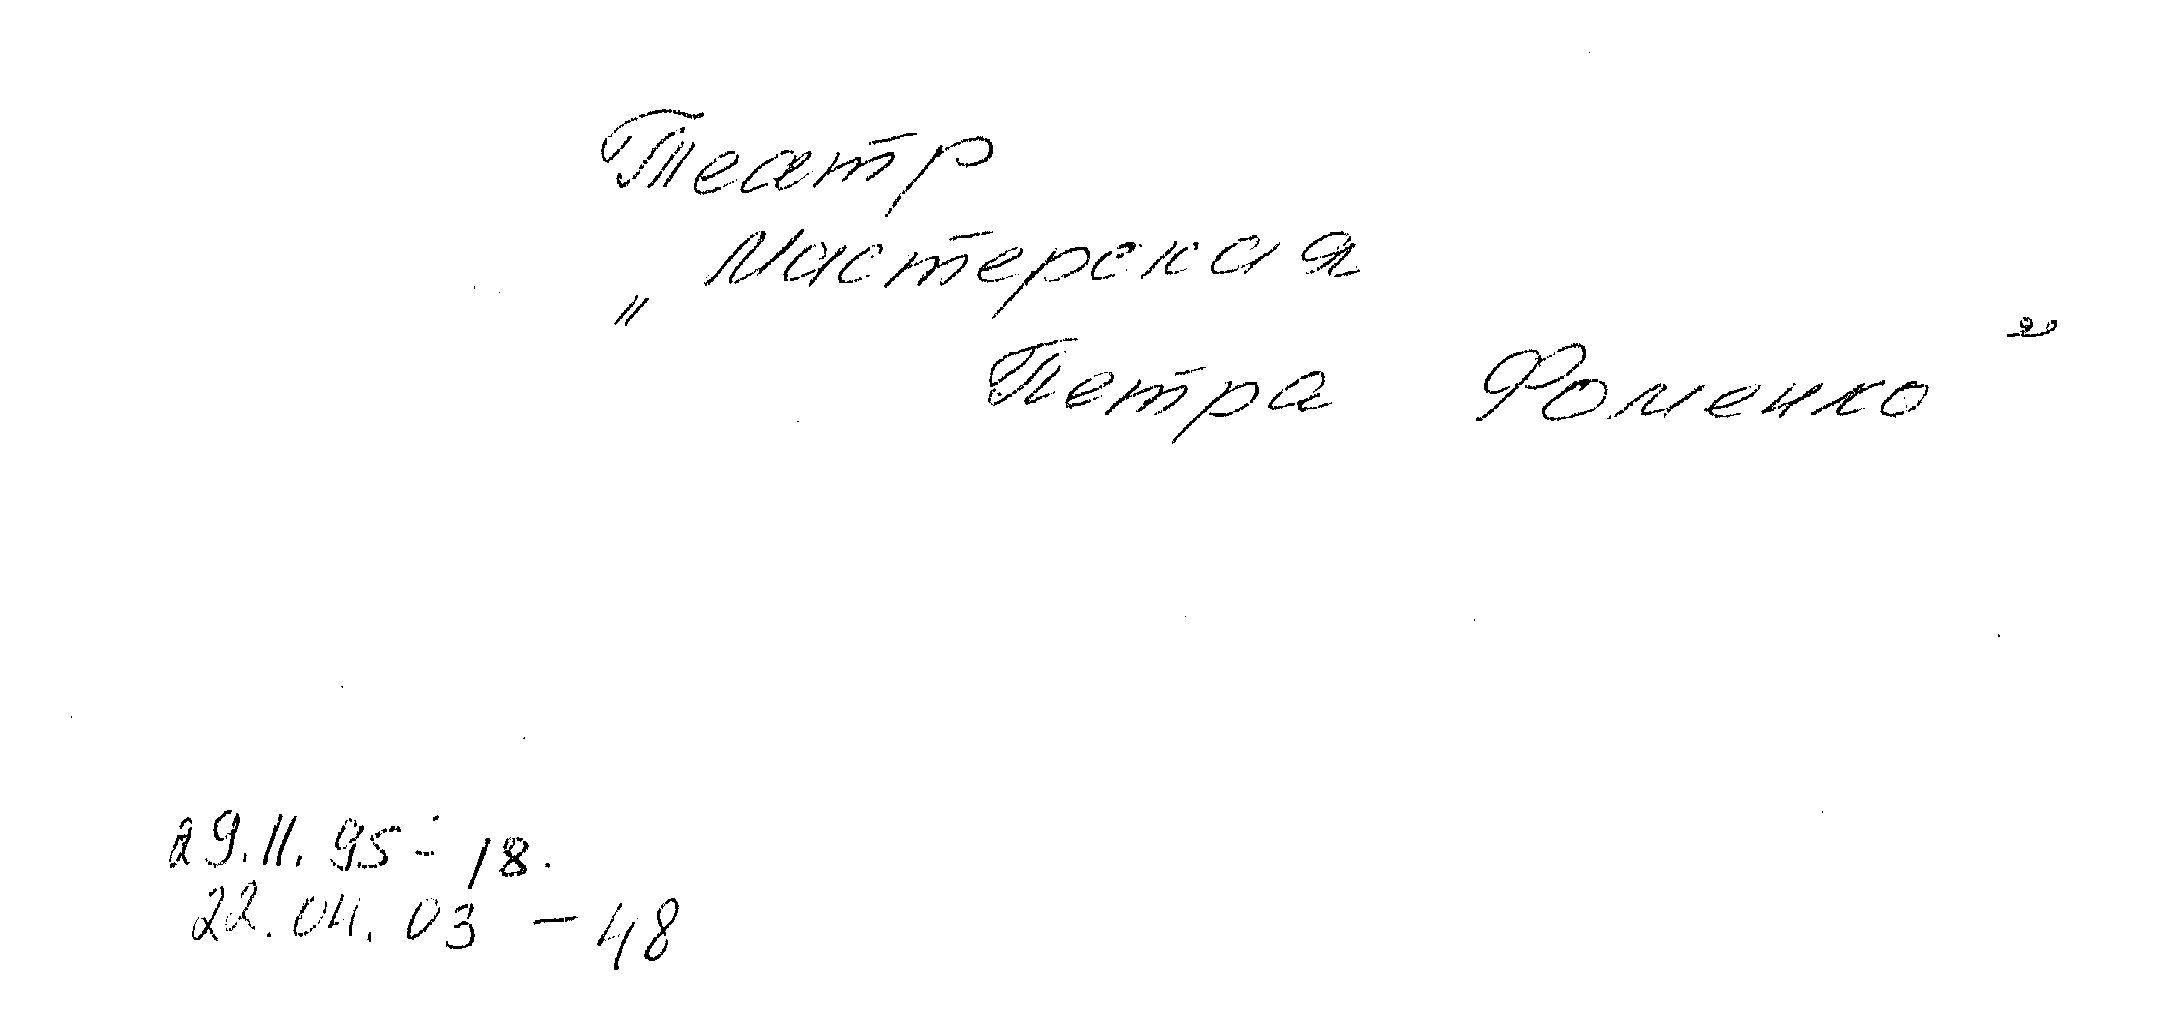 Театр
„ Мастерская
Петра Фоменко "
29.11.95 - 18.
22.04.03 - 48